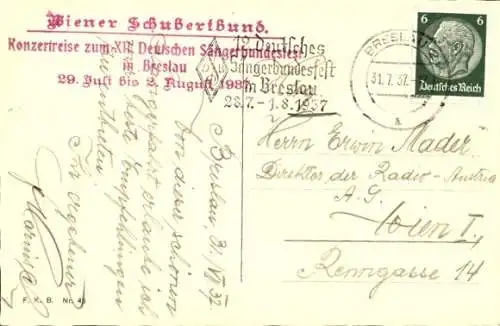 Wiener Schubertbund.
Konzertreise zum XII. Deutschen Sängerbundesfest
in Breslau
29. Juli bis 2. August 1937
12. Deutsches
Sängerbundesfest
in Breslau
28.7.-1.8.1937
BRESLAU
31.7.37.
a
6 6
Deutsches Reich
Breslau, 31. VII. 37
Von dieser schönen
Sängerfahrt erlaube ich
beste Empfehlungen
zu entbieten.
Ihr ergebener
Herrn Erwin Mader
Direktor der Radio-Austria
A. G.
Wien I.,
Renngasse 14
F. K. B. Nr. 45